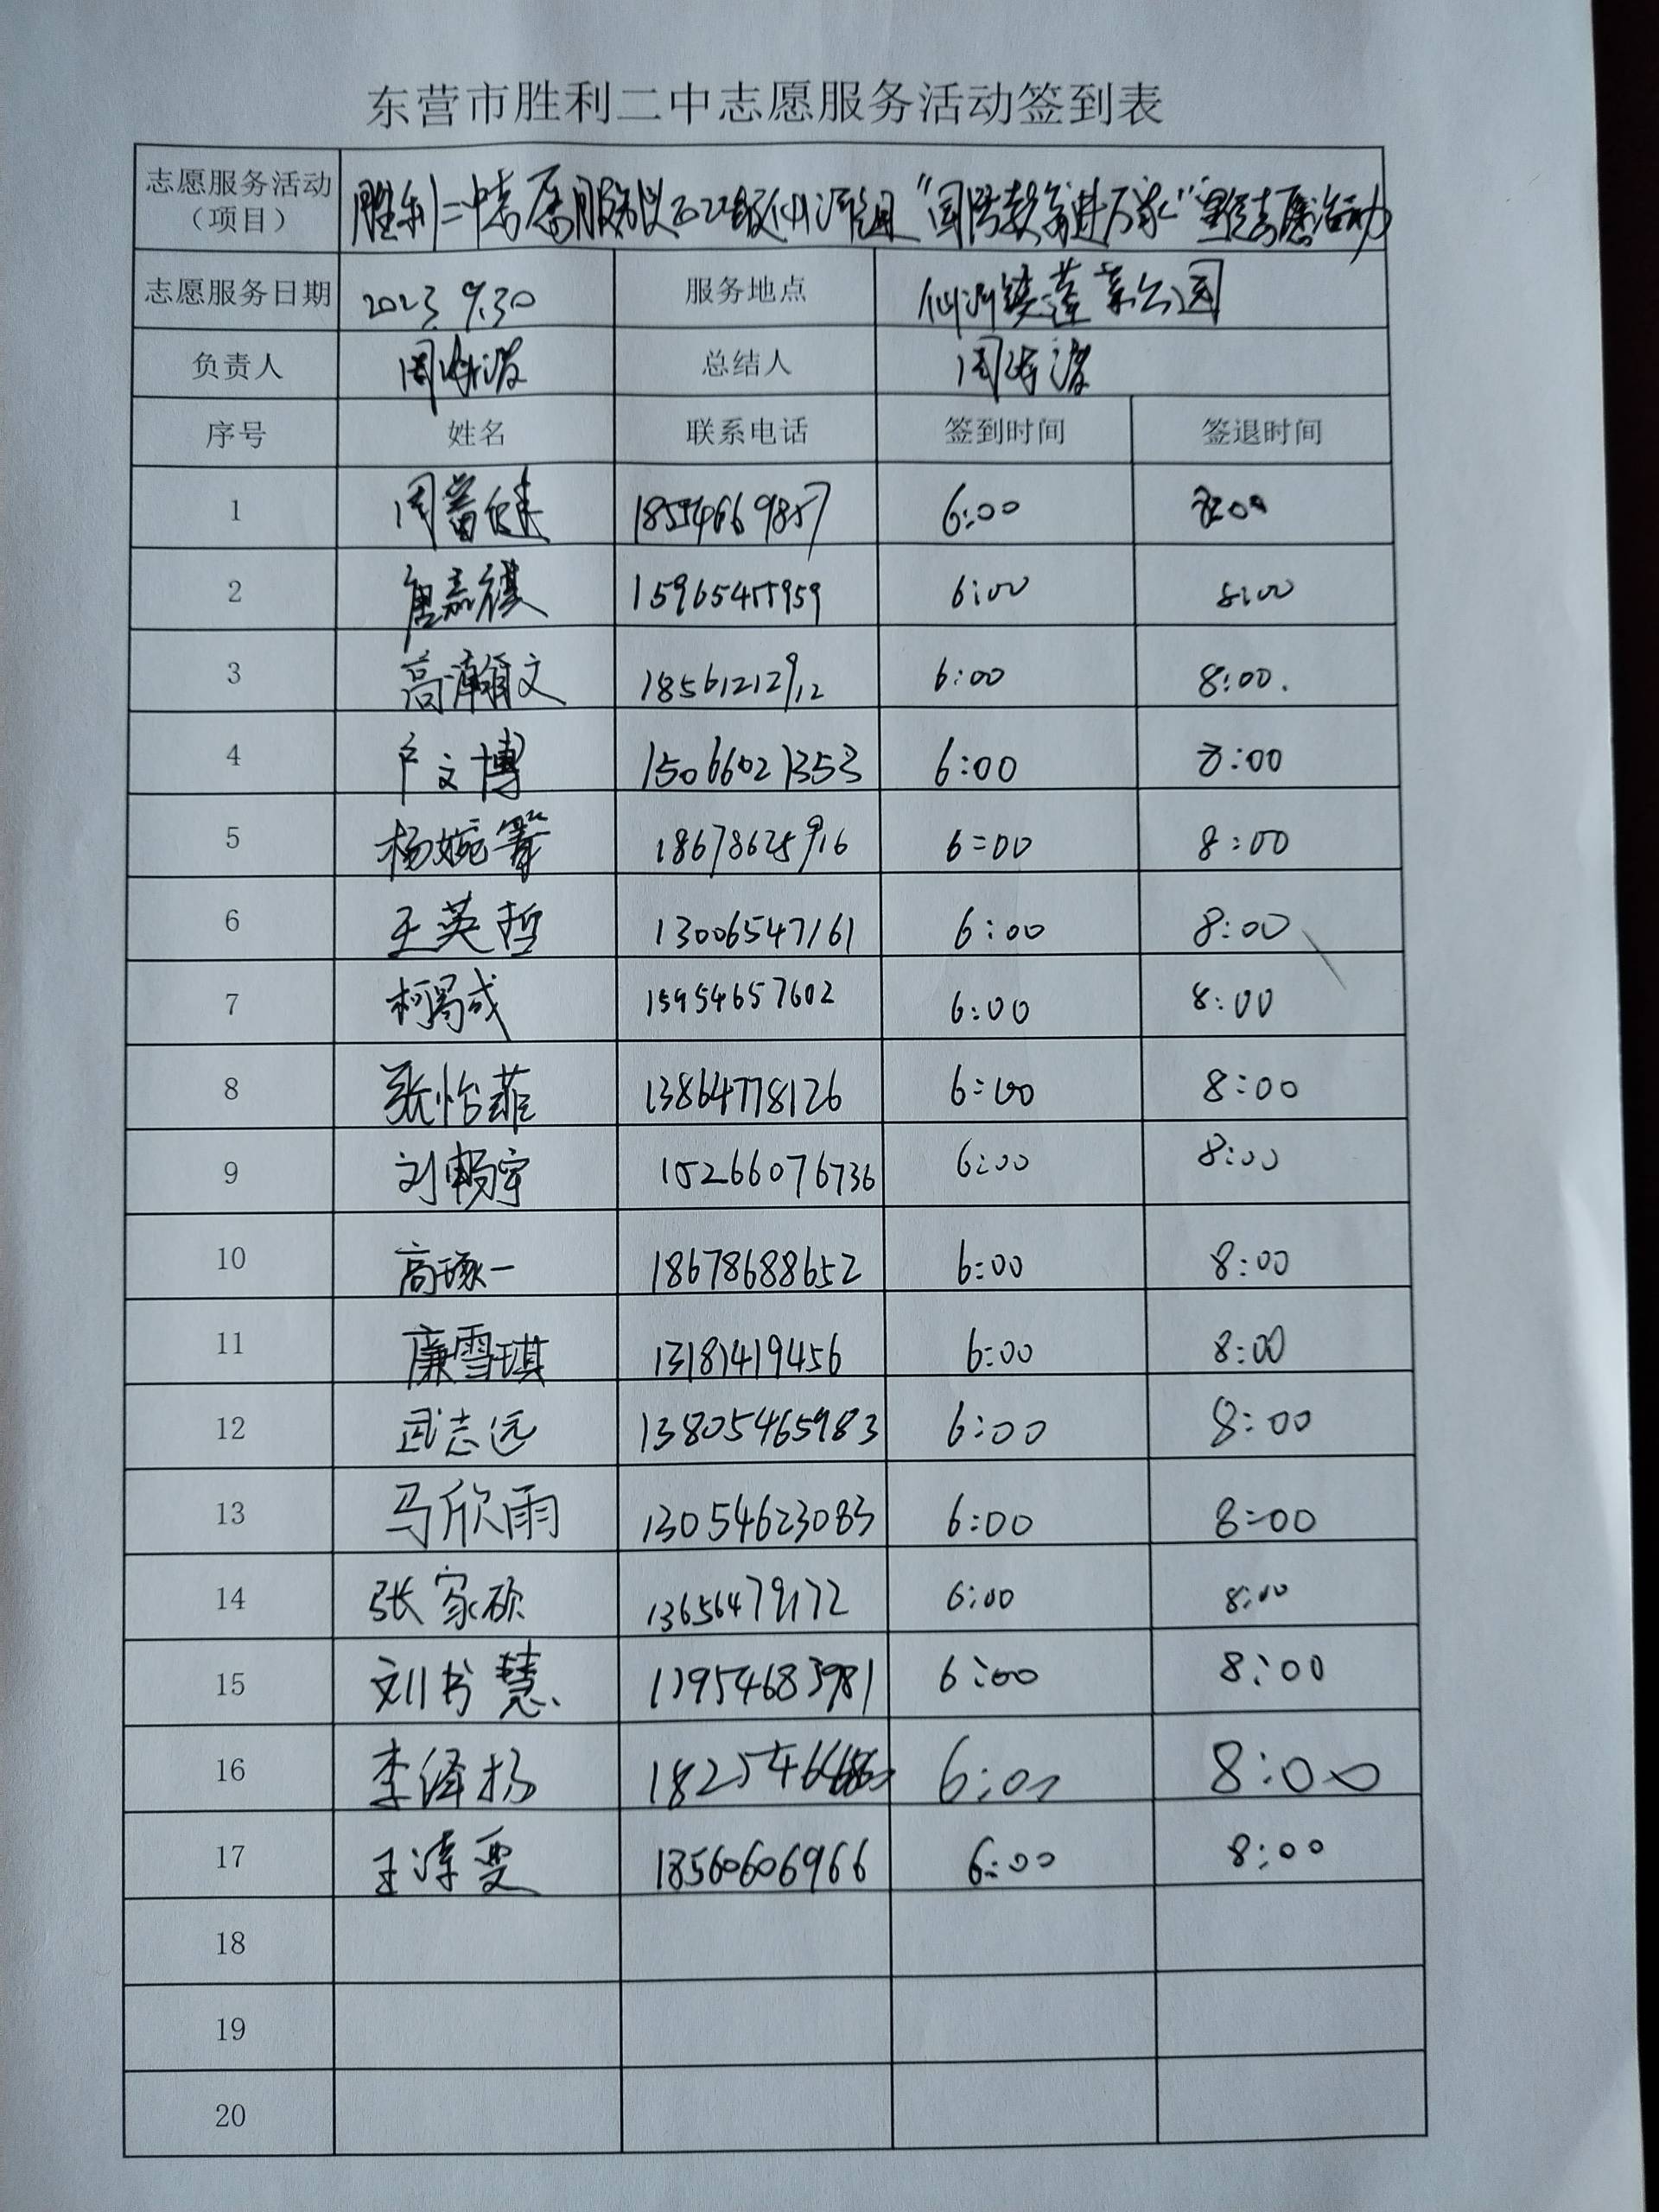 东营市胜利二中志愿服务活动签到表
志愿服务活动（项目） 胜利二中志愿服务队2022级仙河组“国防教育进万家”志愿活动
志愿服务日期 2023.9.30 服务地点 仙河镇蓬莱公园
负责人 周 总结人 周
序号 姓名 联系电话 签到时间 签退时间
1 周 18554669857 6:00
2 唐嘉祺 15965455959 6:00 8:00
3 高瀚文 18561212912 6:00 8:00.
4 卢文博 15066021353 6:00 8:00
5 杨婉 18678625916 6:00 8:00
6 王英哲 13006547161 6:00 8:00
7 柯 成 15954657602 6:00 8:00
8 张怡菲 13864778126 6:00 8:00
9 刘畅宇 15266076736 6:00 8:00
10 高琢一 18678688652 6:00 8:00
11 廉雪琪 13181419456 6:00 8:00
12 武志远 13805465983 6:00 8:00
13 马欣雨 13054623083 6:00 8:00
14 张家硕 13656479172 6:00 8:00
15 刘书慧 13954683981 6:00 8:00
16 李泽扬 6:00 8:00
17 王 雯 18560606966 6:00 8:00
18
19
20